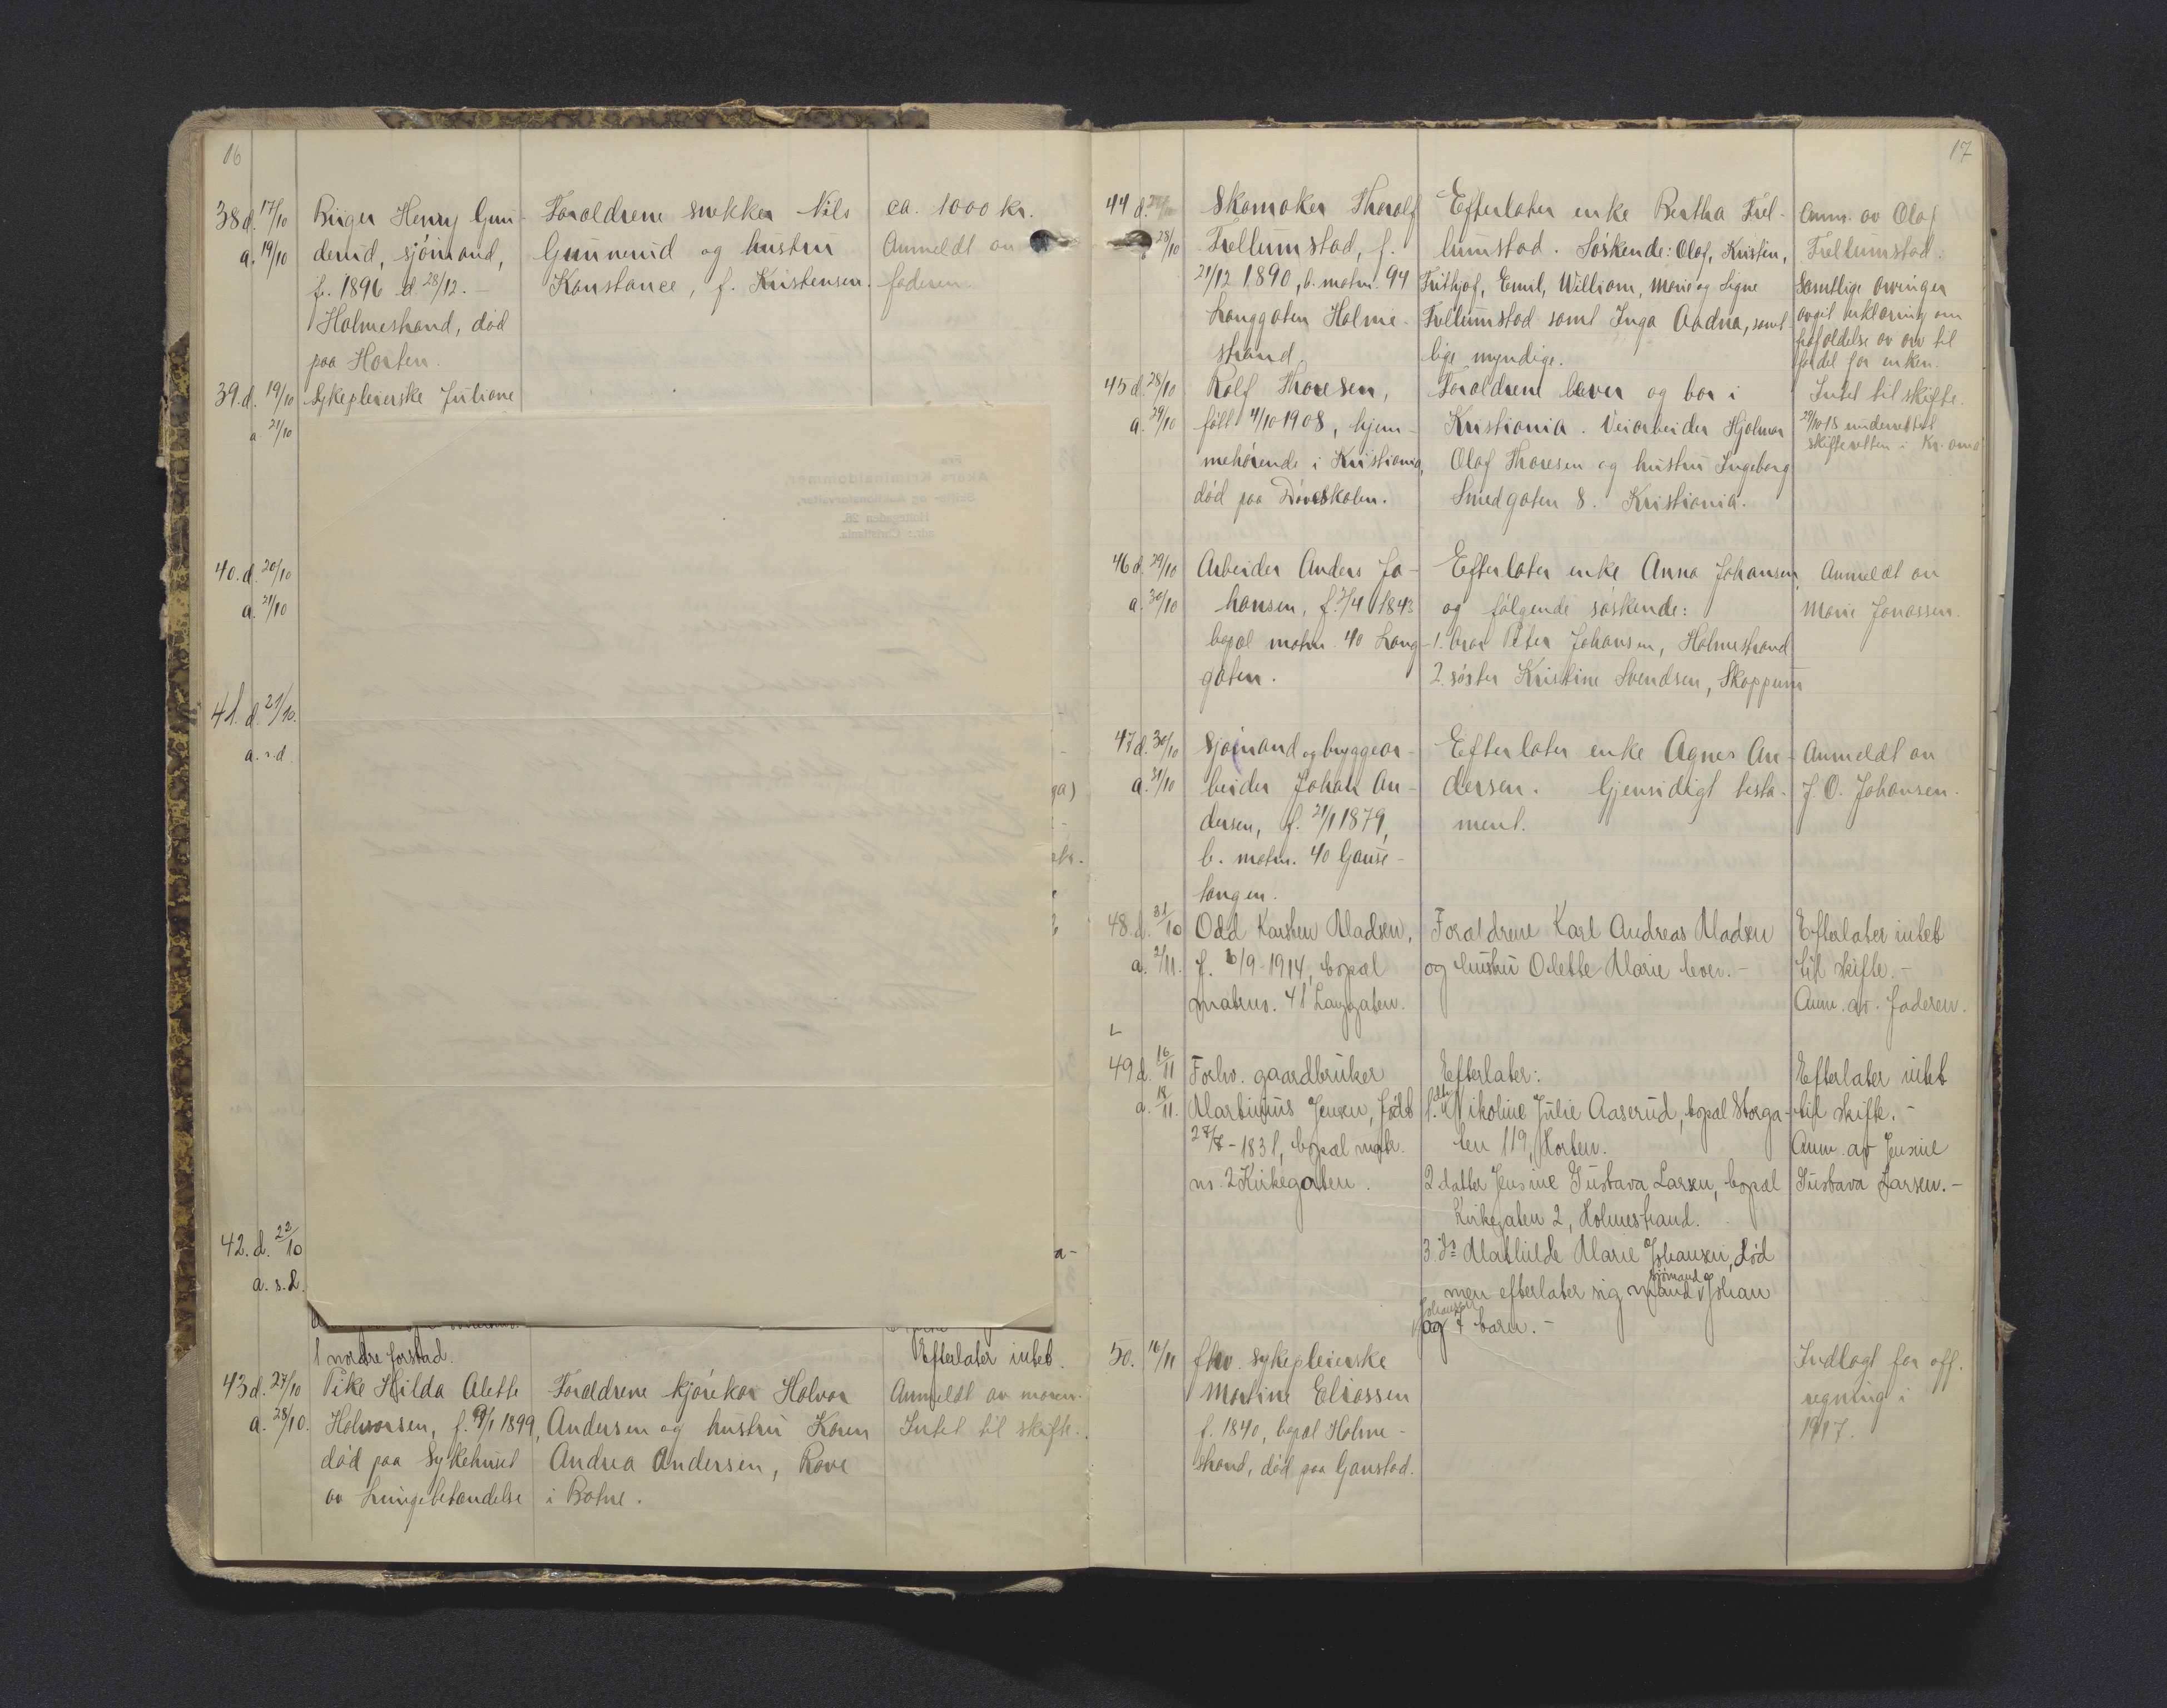 16
38 d. 17/10 Birger Henry Gun- Forældrene snekker Nils ca. 1000 kr.
a. 19/10 derud, sjömand, Gunnerud og hustru Anmeldt av
f. 1896 d. 28/12. Konstance, f. Kristensen. faderen.
Holmestrand, død
paa Horten.
39. d. 19/10 Sykepleierske Juliane
a. 21/10
40. d. 20/10
a. 21/10
41. d. 21/10.
a. s.d.
42. d. 22/10
a. s.d.
1 nordre forstad. Efterlater intet.
43 d. 27/10 Pike Hilda Alette Forældrene kjørekar Halvor Anmeldt av moren.
a. 28/10. Halvorsen, f. 9/1 1899, Andersen og hustru Karen Intet til skifte.
død paa Sykehuset Andrea Andersen, Rove
av Lungebetændelse i Botne.
17
44 d. Skomaker Thorolf Efterlater enke Bertha Trel- Anm. av Olaf
28/10 Trellumstad, f. lumstad. Söskende: Olaf, Kristen, Trellumstad.
21/12 1890, b. matrn. 94 Frithjof, Emil, William, Marie og Signe Samtlige arvinger
Langgaten Holme- Trellumstad samt Inga Aadna, samt- avgit erklæring om
strand. lige myndige. frafaldelse av arv til
fordel for enken.
45 d. 28/10 Rolf Thoresen, Forældrene lever og bor i Intet til skifte.
a. 29/10 født 4/10 1908, hjem- Kristiania. Veiarbeider Hjalmar 29/10 18 underrettet
mehörende i Kristiania, Olaf Thoresen og hustru Ingeborg skifteretten i Kr.ania
död paa Døveskolen. Smedgaten 8. Kristiania.
46 d. 29/10 Arbeider Anders Jo- Efterlater enke Anna Johansen Anmeldt av
a. 30/10 hansen, f. 2/4 1843 og følgende søskende: Marie Jonassen.
bopæl matrn. 40 Lang- 1. bror Peter Johansen, Holmestrand
gaten. 2. søster Kristine Svendsen, Skoppum
47 d. 30/10 Sjømand og bryggear- Efterlater enke Agnes An- Anmeldt av
a. 31/10 beider Johan An- dersen. Gjensidigt testa- J. O. Johansen.
dersen, f. 21/1 1879, ment.
b. matrn. 40 Gause-
langen.
48. d. 31/10 Odd Karsten Madsen, Forældrene Karl Andreas Madsen Efterlater intet
a. 2/11. f. 6/9-1914, bopæl og hustru Odette Marie lever.- til skifte.-
matrnr. 41 Langgaten. Anm. av. faderen.
49 d. 16/11 Forhv. gaardbruker Efterlater: Efterlater intet
a. 18/11. Martinius Jensen, født 1. dtr. Nikoline Julie Aaserud, bopæl Storga- til skifte.-
27/8-1831, bopæl matr. ten 119, Horten. Anm. av Jensine
nr. 2 Kirkegaten. 2 datter Jensine Gustava Larsen, bopæl Gustava Larsen.-
Kirkegaten 2, Holmestrand.
3 do Mathilde Marie Johansen, død
men efterlater sig mand sjømand Johan
Johansen og 7 barn.-
50. 16/11 fhv. Sykepleierske Indlagt for off.
Martine Eliassen regning i
f. 1840, bopæl Holme- 1917.
strand, död paa Gaustad.